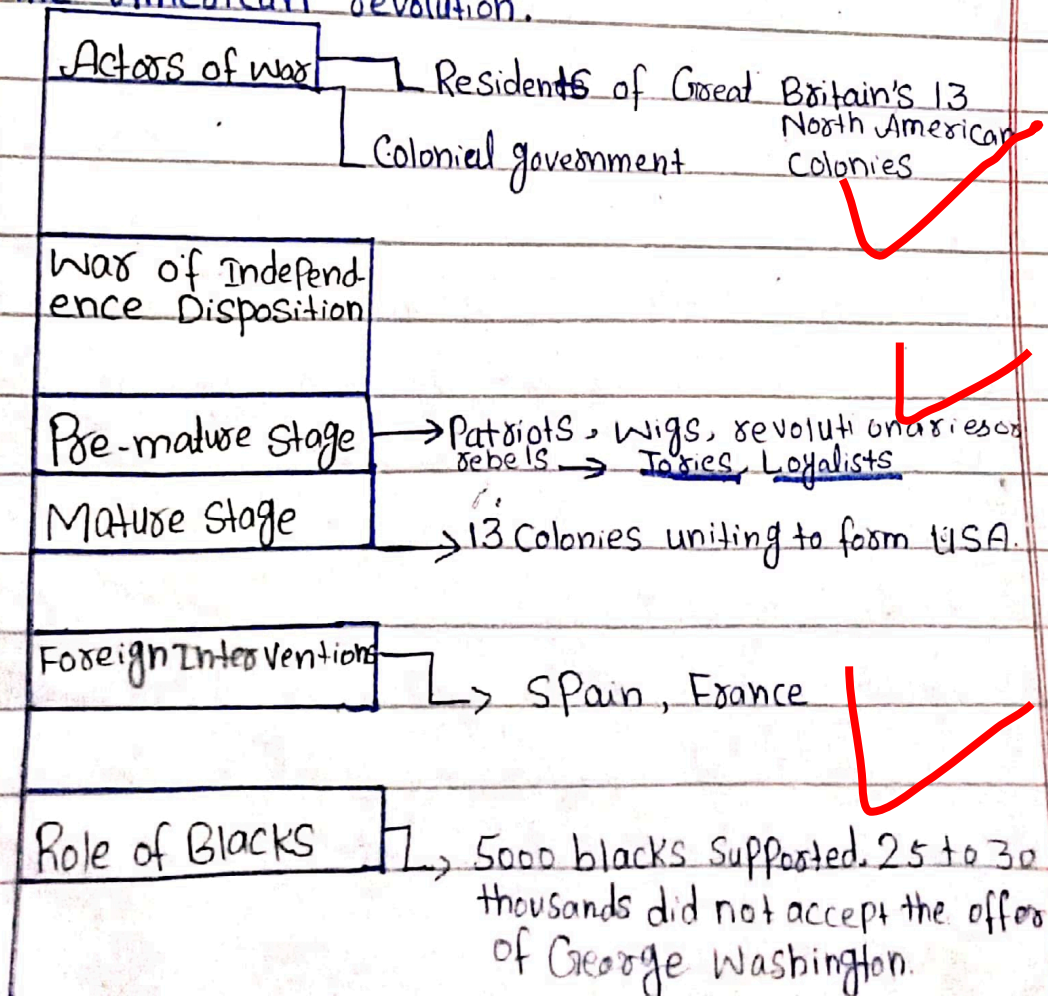 American Revolution.
Actors of war
Residents of Great Britain's 13
North American
Colonies
Colonial government
War of Independ-
ence Disposition
Pre-mature Stage
Patriots, Wigs, revolutionaries or
rebels → Tories, Loyalists
Mature Stage
→ 13 Colonies uniting to form USA.
Foreign Interventions
Spain, France
Role of Blacks
5000 blacks Supported. 25 to 30
thousands did not accept the offer
of George Washington.